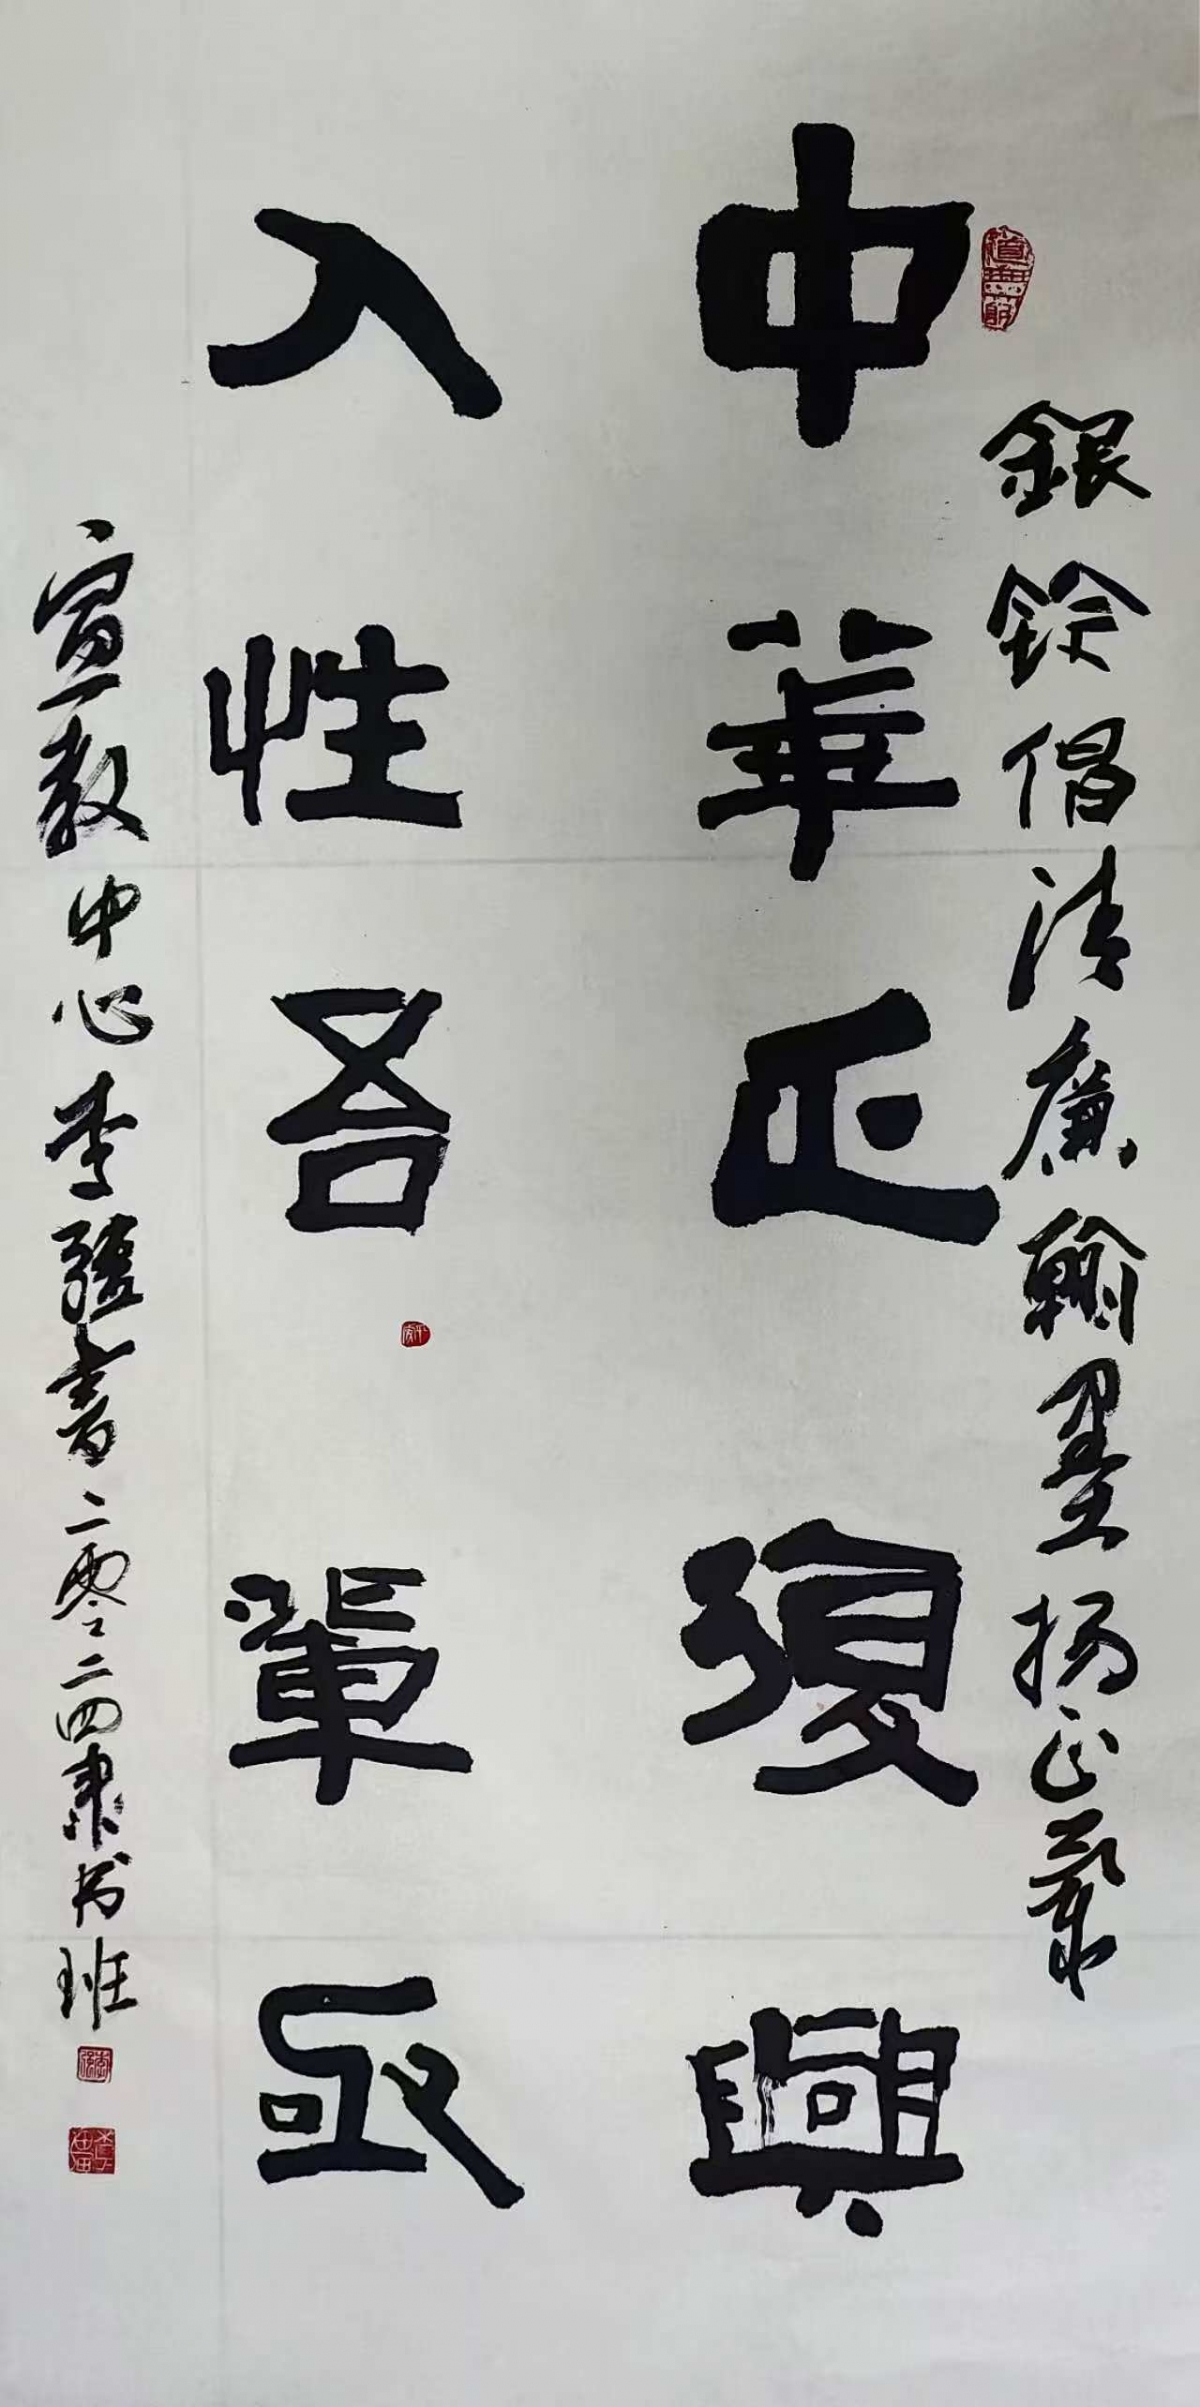 銀鈴倡清廉翰墨揚正氣
中華正復興
入性吾輩亟
宣教中心李強書二零二四隶书班